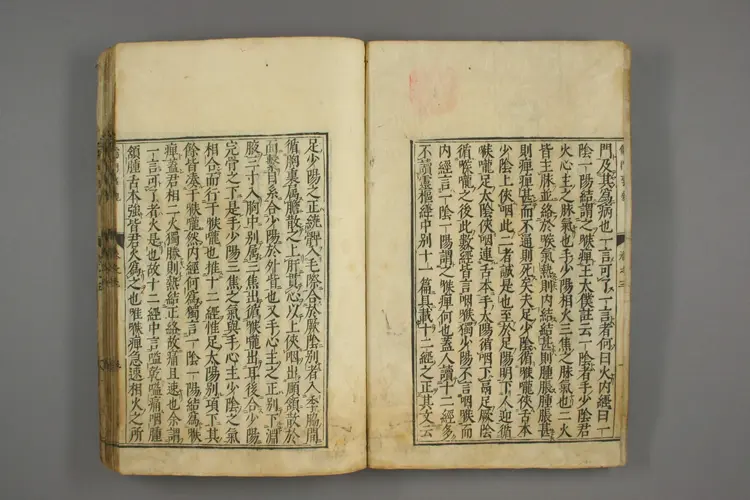 門及其爲病也一言可了一言者何曰火内經曰一
陰一陽結謂之喉痺王太僕註云一陰者手少陰君
火心主之脉氣也手少陽相火三焦之脉氣也二火
皆主脉並絡於喉氣熱則内結結甚則腫脹腫脹甚
則痺痺甚而不通則死矣夫足少陰循喉嚨俠舌本
少陰上俠咽此二者誠是也至於足陽明下人迎循
喉嚨足太陰俠咽連舌本手太陽循咽下鬲足厥陰
循喉嚨之後此數經皆言咽喉獨少陽不言咽喉而
内經言一陰一陽謂之喉痺何也蓋人讀十二經多
不讀靈樞經中别十一篇具載十二經之正其文云
足少陽之正繞髀入毛際合於厥陰别者入季脇間
循胸裏属膽散之上肝貫心以上俠咽出頤頷散於
面繫目系合少陽於外眥也又手心主之正别下淵
腋三寸入胸中别属三焦出循喉嚨出耳後合少陽
完骨之下是手少陽三焦之氣與手心主少陰之氣
相合而行于喉嚨也推十二經惟足太陽别項下其
餘皆湊于喉嚨然内經何爲獨言一陰一陽結爲喉
痺蓋君相二火獨勝則熱結正絡故痛且速也余謂
一言可了者火是也故十二經中言嗌乾嗌痛咽腫
頷腫舌本強皆君火爲之也惟喉痺急速相火之所